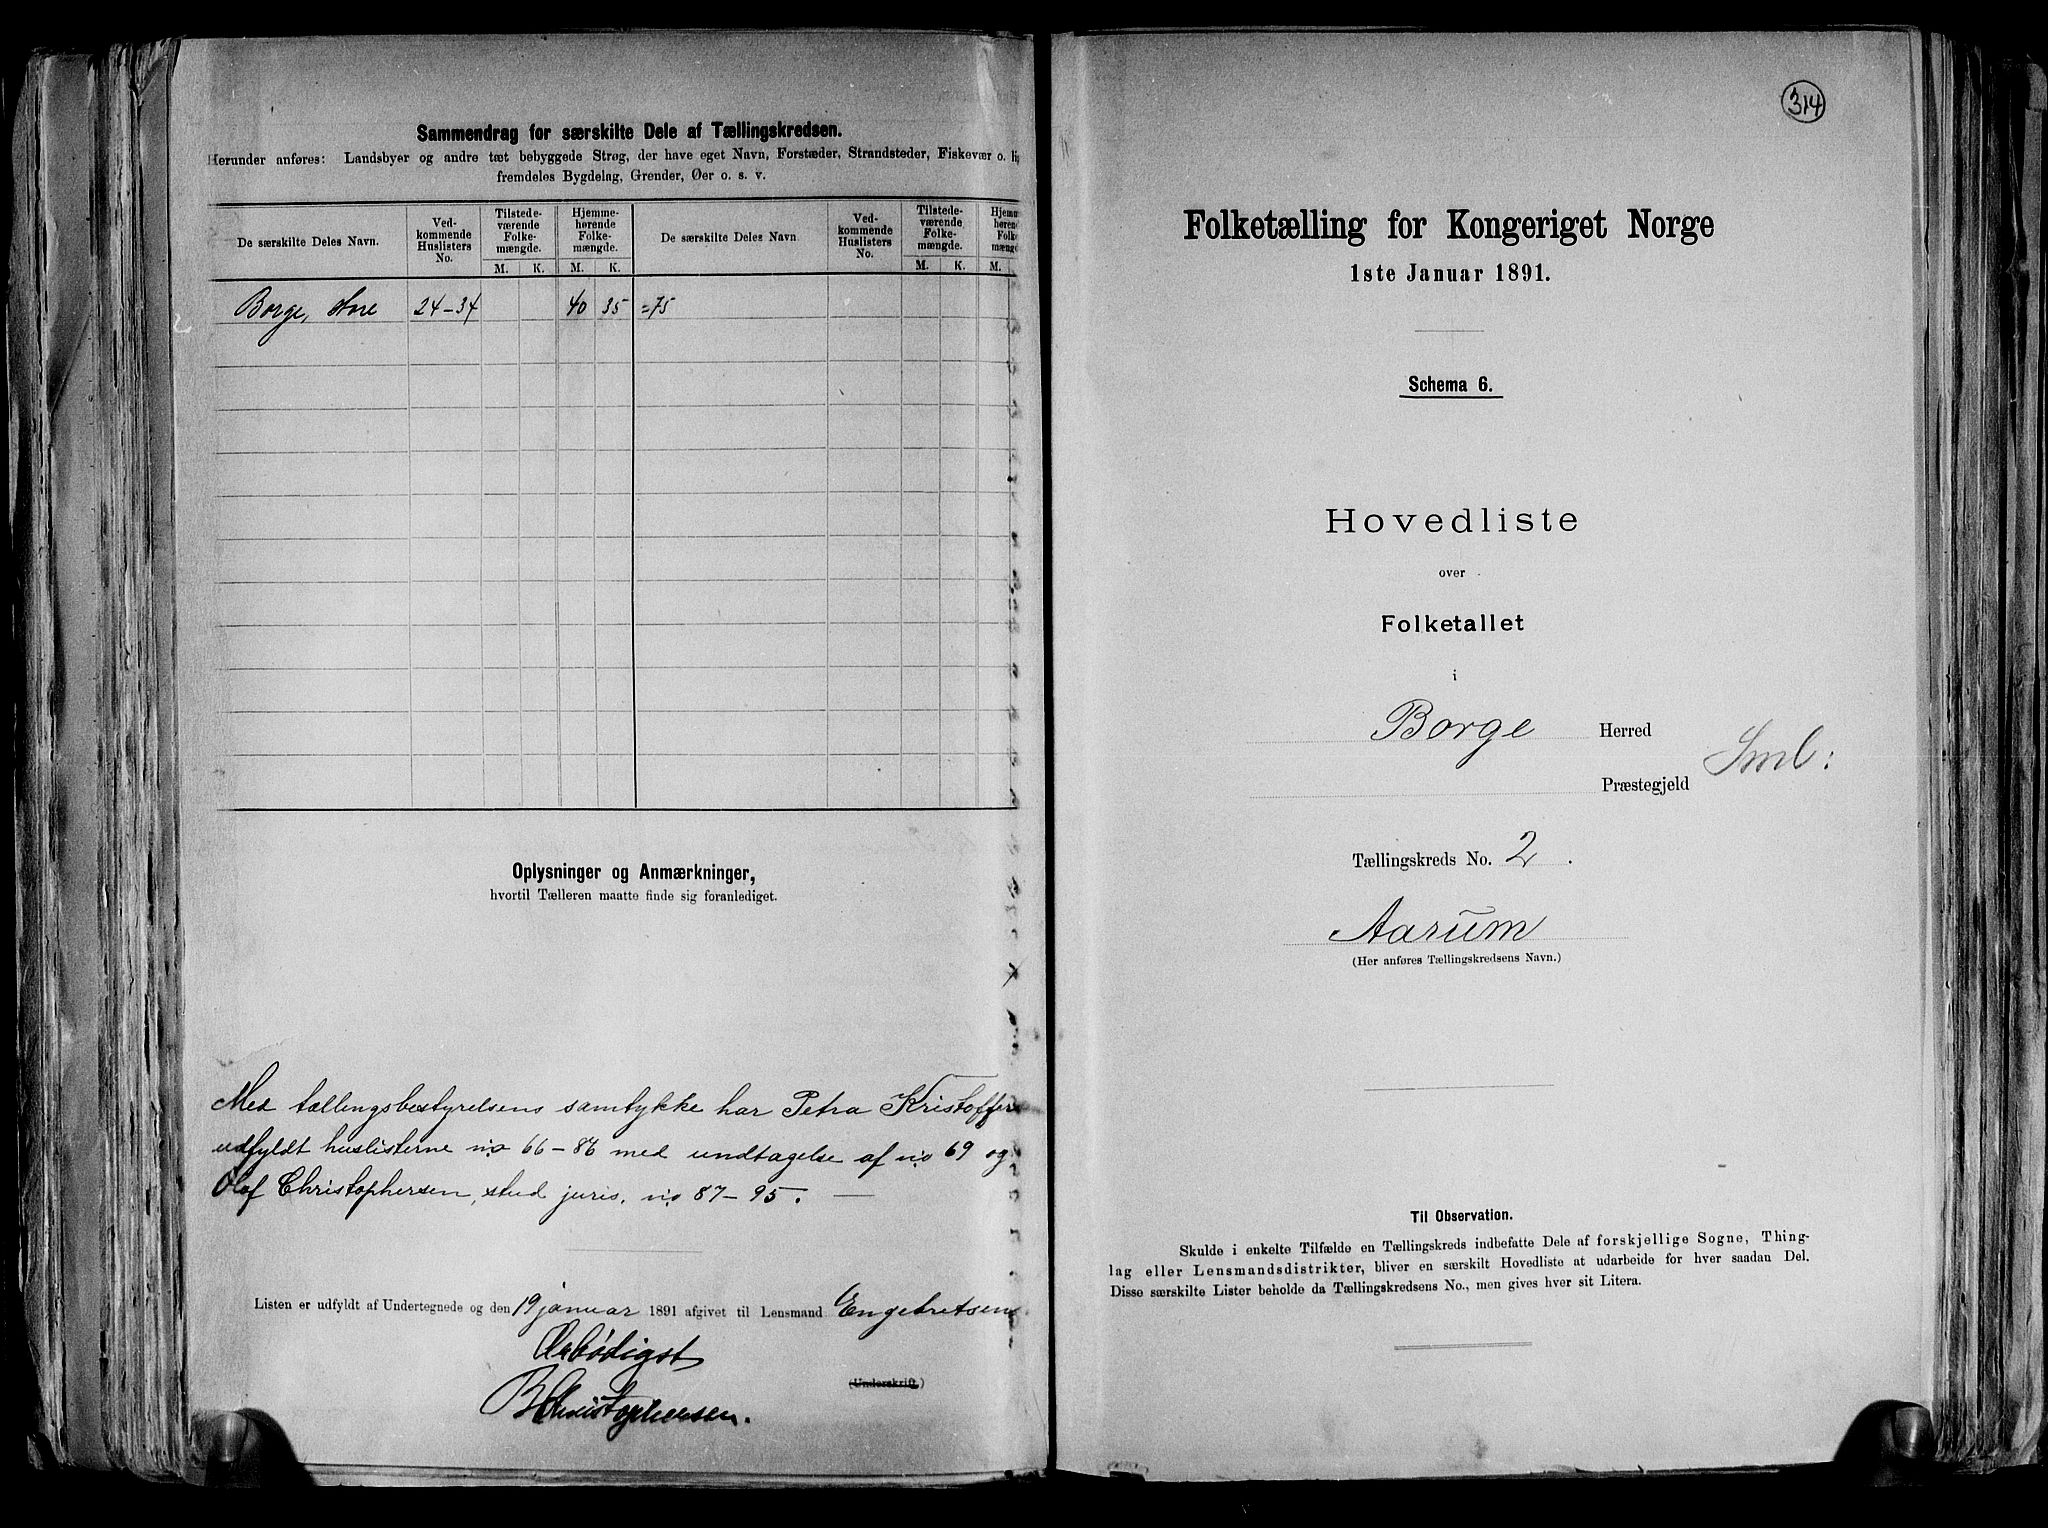 Sammendrag for særskilte Dele af Tællingskredsen.
Herunder anføres: Landsbyer og andre tæt bebyggede Strøg, der have eget Navn, Forstæder, Strandsteder, Fiskevær o. li
fremdeles Bygdelag, Grender, Øer o. s. v.
De særskilte Deles Navn. Ved-kommende Huslisters No. Tilstede-værende Folke-mængde. Hjemme-hørende Folke-mængde. De særskilte Deles Navn Ved-kommende Huslisters No. Tilstede-værende Folke-mængde. Hjemm hørend Folke mængde
M. K. M. K. M. K. M.
Borge, store 24-34 40 35 =75
Oplysninger og Anmærkninger,
hvortil Tælleren maatte finde sig foranlediget.
Med tællingsbestyrelsens samtykke har Petra Kristoffer
udfyldt huslisterne no 66-86 med undtagelse af no 69 og
Olaf Christophersen, stud juris, no 87-95. —
Listen er udfyldt af Undertegnede og den 19 januar 1891 afgivet til Lensmand Engebretsen
Ærbødigst
(Underskrift.)
B Christophersen.
314
Folketælling for Kongeriget Norge
1ste Januar 1891.
Schema 6.
Hovedliste
over
Folketallet
i
Borge Herred
Sml:
Præstegjeld
Tællingskreds No. 2.
Aarum
(Her anføres Tællingskredsens Navn.)
Til Observation.
Skulde i enkelte Tilfælde en Tællingskreds indbefatte Dele af forskjellige Sogne, Thing-
lag eller Lensmandsdistrikter, bliver en særskilt Hovedliste at udarbeide for hver saadan Del.
Disse særskilte Lister beholde da Tællingskredsens No., men gives hver sit Litera.